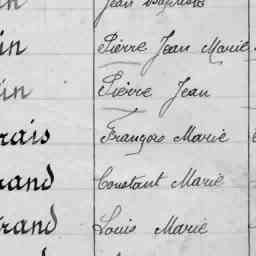 Jean Baptiste
in Pierre Jean Marie
in Pierre Jean
rais François Marie
rand Constant Marie
rand Louis Marie